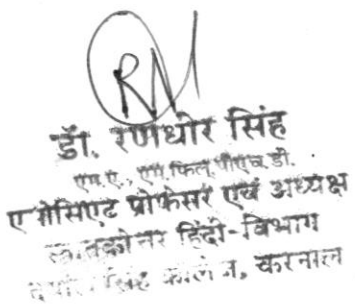 RM
डॉ. रणधीर सिंह
एम.ए., एम.फिल, पीएच.डी.
एसोसिएट प्रोफेसर एवं अध्यक्ष
स्नातकोत्तर हिंदी-विभाग
दयाल सिंह कालेज, करनाल